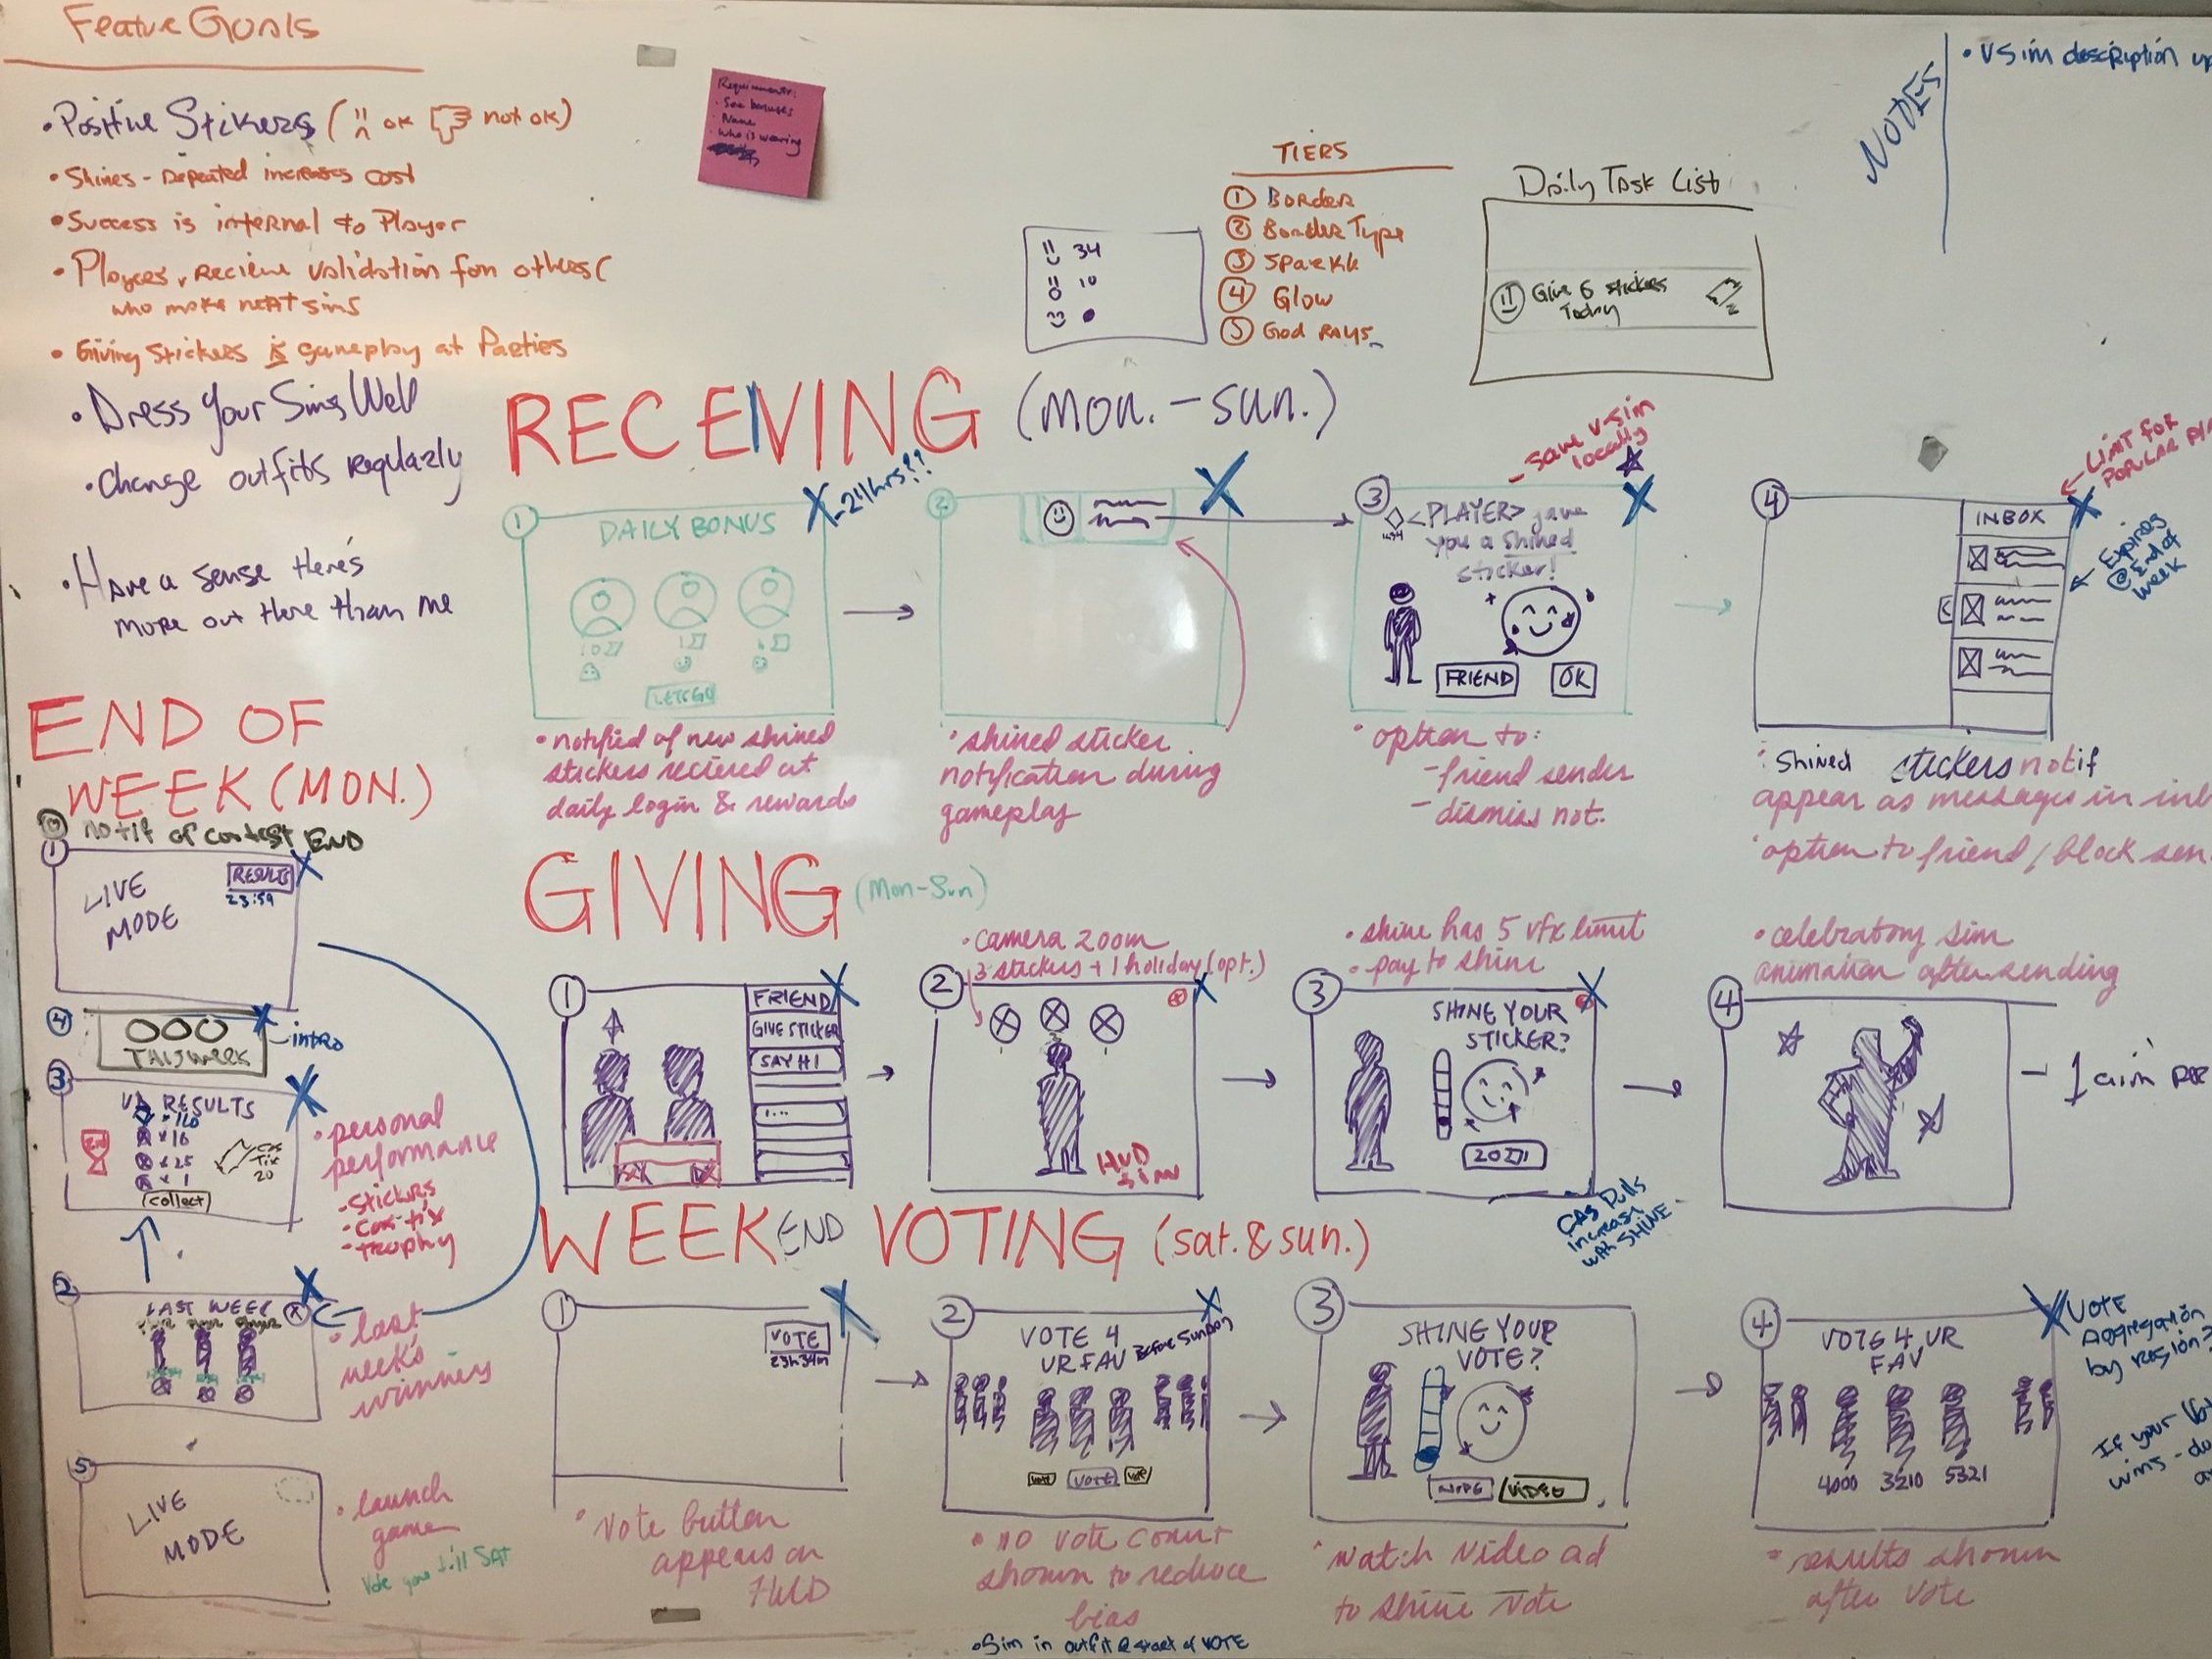 Feature Goals
• Positive Stickers ( ok not ok)
• Shines - Repeated increases cost
• Success is internal to Player
• Players recieve validation fom others (
who make neat sims
• Giving Stickers is gameplay at Parties
• Dress your Sims Well
• Change outfits regularly
• Have a sense there's
more out there than me
Requirements:
• See bonuses
• Name
• Who is wearing
34
10
TIERS
① Border
② Border Type
③ Sparkle
④ Glow
⑤ God Rays
Daily Task List
Give 6 stickers
Today
NOTES
• V Sim description
RECEIVING (MON.-SUN.)
① DAILY BONUS
- 24hrs?!
LETS GO
• notified of new shined
stickers recieved at
daily login & rewards
②
• shined sticker
notification during
gameplay
- Save V-sim
locally
③ <PLAYER> gave
you a shined
sticker!
FRIEND OK
• option to:
- friend sender
- dismiss not.
LIMIT FOR
POPULAR
④ INBOX
Expires
@ End of
week
• Shined stickers notif
appear as messages in
• option to friend / block
END OF
WEEK (MON.)
⓪ notif of contest END
① LIVE
MODE
RESULTS
23:59
④ THIS WEEK
- intro
③ RESULTS
x 16
x 25
x 1
2nd
20
collect
• personal
performance
- stickers
- trophy
② LAST WEEK
• last
week's
winners
⑤ LIVE
MODE
• launch
game
Vote gone till SAT
GIVING (Mon-Sun)
① FRIEND
GIVE STICKER
SAY HI
• camera zoom
3 stickers + 1 holiday (opt.)
②
HUD
• shine has 5 vfx limit
• pay to shine
③ SHINE YOUR
STICKER?
20
CAS Pulls
increase
with SHINE
• celebratory sim
animation after sending
④
- 1 anim
WEEKEND VOTING (sat. & sun.)
① VOTE
23h 34m
• Vote button
appears on
HUD
② VOTE 4
UR FAV Before Sunday
VOTE VOTE VOTE
• no vote count
shown to reduce
bias
• Sim in outfit @ start of VOTE
③ SHINE YOUR
VOTE?
NOPE VIDEO
• watch video ad
to shine vote
④ VOTE 4 UR
FAV
4000 3210 5321
• results shown
after vote
VOTE
Aggregation
by region?
If your
wins -